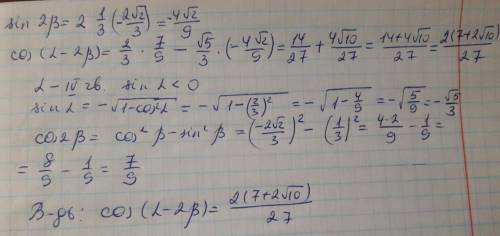 sin 2β = 2 · 1/3 (-2√2/3) = -4√2/9
cos(α-2β) = 2/3 · 7/9 - √5/3 · (-4√2/9) = 14/27 + 4√10/27 = 14+4√10/27 = 2(7+2√10)/27
α - IV чв. sin α < 0
sin α = -√1-cos²α = -√1-(2/3)² = -√1-4/9 = -√5/9 = -√5/3
cos2β = cos²β - sin²β = (-2√2/3)² - (1/3)² = 4·2/9 - 1/9 =
= 8/9 - 1/9 = 7/9
В-дь: cos(α-2β) = 2(7+2√10)/27